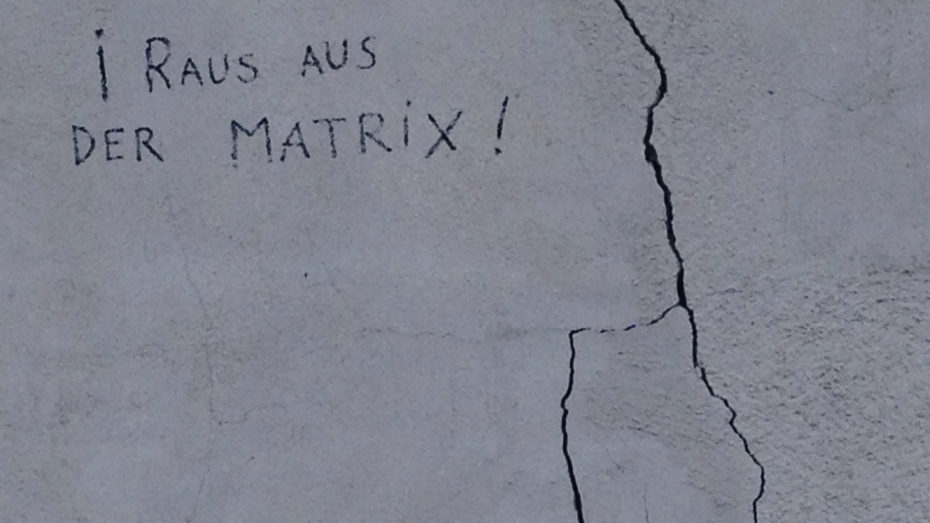 ¡ RAUS AUS
DER MATRiX !